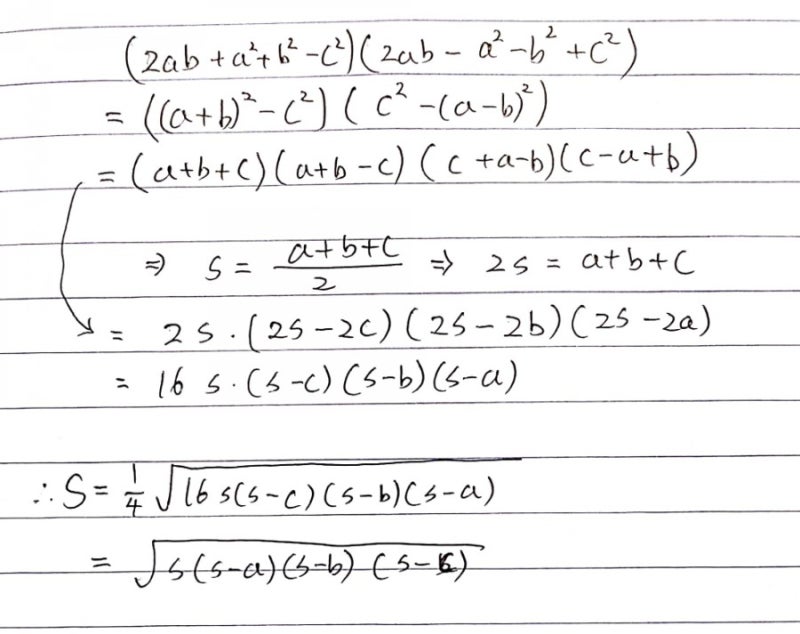 (2ab + a² + b² - c²)(2ab - a² - b² + c²)
= ((a+b)² - c²) (c² - (a-b)²)
= (a+b+c)(a+b-c)(c+a-b)(c-a+b)
⇒ s = (a+b+c)/2 ⇒ 2s = a+b+c
= 2s·(2s-2c)(2s-2b)(2s-2a)
= 16 s·(s-c)(s-b)(s-a)
∴ S = 1/4 √(16 s(s-c)(s-b)(s-a))
= √(s(s-a)(s-b)(s-c))